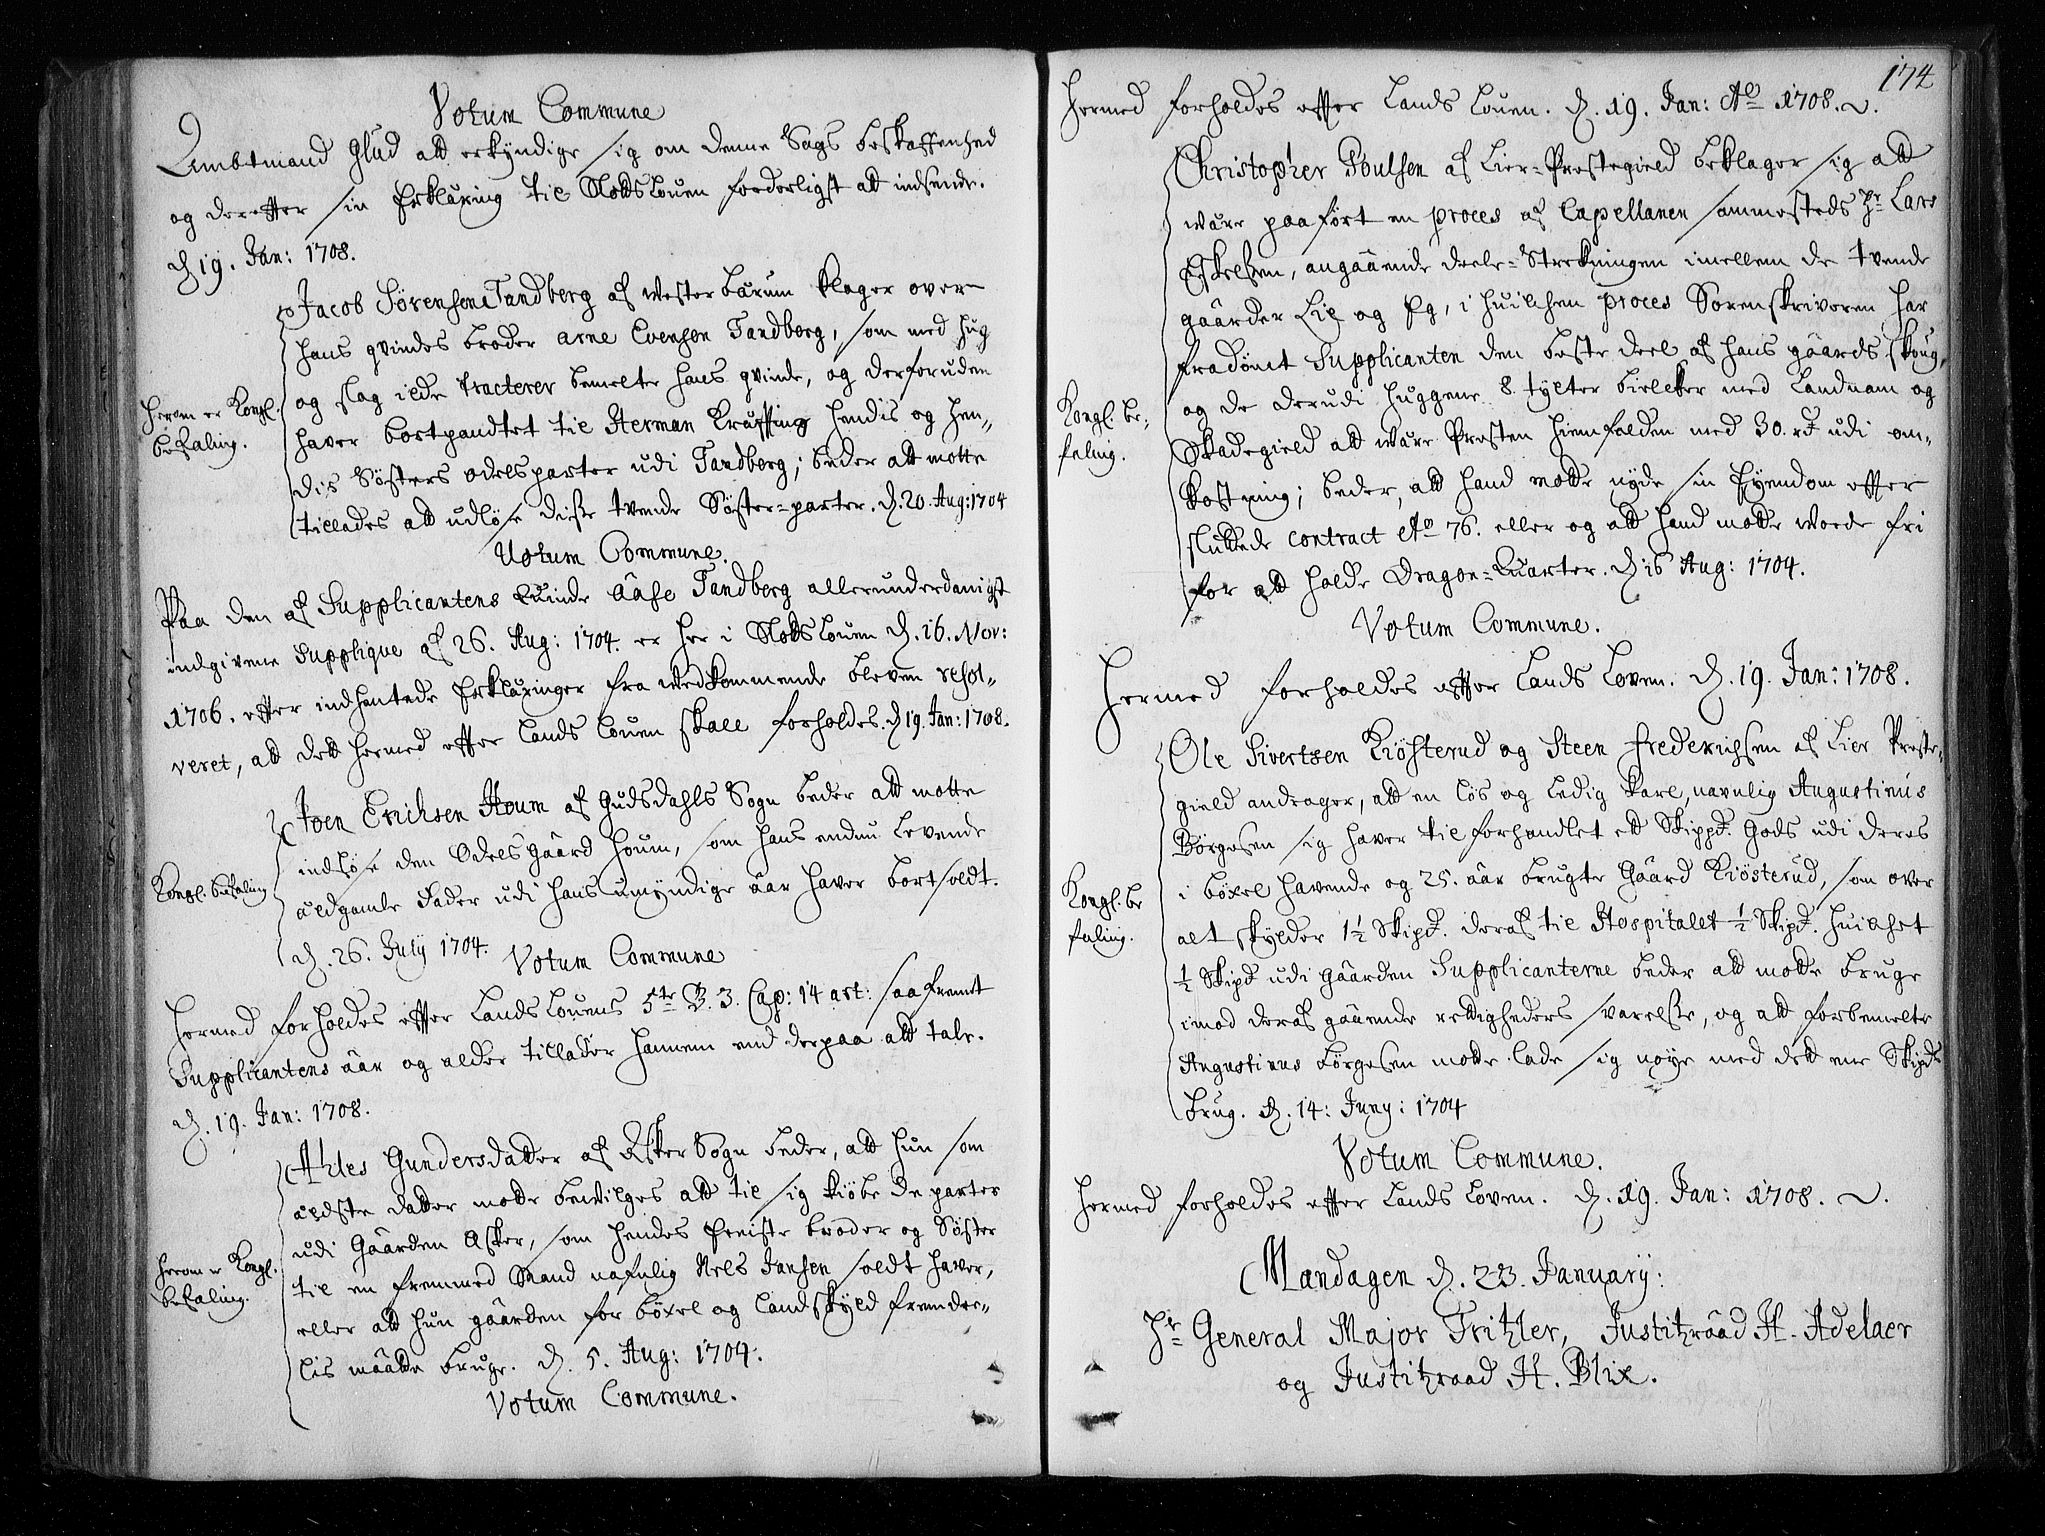 Votum Commune
Ambtmand Glud att erkyndige sig om denne Sags beskaffenhed
og derefter sin Erklæring til SlodsLouen forderligst att indsende.
d 19. Jan: 1708.
Jacob Sörensen Tandberg af Wester Bærum klager over
hans qvindes broder Arne Evensen Tandberg, som med hug
og slag ilde tracterer bemelte hans qvinde, og derforuden
haver bortpandtet til Herman Krefting hendis og hen„
dis Søsters odelsparter udi Tandberg; beder att motte
tillades att udløse disse tvende Søster-parter. d. 20. Aug: 1704
Herom er Kongl.
befaling.
Votum Commune.
Paa den af Supplicantens Quinde Aase Tandberg allerunderdanigst
indgivene Supplique af 26. Aug: 1704. er her i SlodsLouen d. 16. Nov:
1706. efter indhentede Erklæringer fra vedkommende bleven resol„
veret, att dett hermed effter Lands Louen skall forholdes. d 19. Jan: 1708.
Joen Erichsen Houm af Gudsdahls Sogn beder att motte
indløse den Odelsgaard Houm, som hans endnu levende
aldgamle Fader udi hans umyndige aar haver bortsoldt.
d. 26. July 1704.
Kongl. befaling
Votum Commune
Hermed forholdes effter LandsLouens 5te B. 3. Cap: 14 art: saafremt
Supplicantens aar og alder tillader hannem end derpaa att tale.
d. 19. Jan: 1708.
Ahles Gundersdatter af Asker Sogn beder, att hun som
ældste datter motte bevilges att til sig kiöbe de parter
udi Gaarden Asker, som hendes broder og Søster
til en fremmed Mand nafnlig Nels Jansen soldt haver,
eller att hun gaarden for böxel og landskyld fremde„
lis maatte bruge. d. 5. Aug: 1704.
Herom er Kongl.
befaling.
Votum Commune.
174
Hermed forholdes effter Lands Louen. d. 19. Jan: Ao 1708.
Christopher Poulsen af Lier-Prestegield beklager sig att
være paaført en proces af Capellanen sammesteds Hr. Lars
Eskelsen, angaaende deele-Streckningen imellem de tvende
gaarder Lie og Eg, i huilchen proces Sorenskriveren har
fradömt Supplicanten den beste deel af hans gaards skoug,
og de derudi huggene 8 tylter bielcker med Landnam og
Skadegield att være Presten hiemfalden med 30. rd udi om„
kostning; beder, att hand motte nyde sin Eyendom effter
sluttede contract Ao 76. eller og att hand motte worde fri
for att holde Dragon-Quarter. d 16 Aug: 1704.
Kongl. be„
faling.
Votum Commune.
Hermed forholdes effter Lands Loven. d. 19. Jan: 1708.
Ole Sivertsen Kiösterud og Steen Frederichsen af Lier Preste„
gield andrager, att en lös og ledig karl, navnlig Augustinus
Börgesen sig haver tilforhandlet ett Skippd. Gods udi deres
i böxel havende og 25. aar brugte Gaard Kiösterud, som over
alt skylder 1½ Skipd. deraf til Hospitalet ½ Skipd. huilchet
½ Skipd udi gaarden Supplicanterne beder att motte bruge
imod deraf gaaende rettigheders svarelse, og att forbemelte
Augustinus Börgesen motte lade sig nøye med dett ene Skipds
brug. d. 14: Juny: 1704
Kongl. be
faling.
Votum Commune.
Hermed forholdes effter Lands Loven. d. 19. Jan: 1708.
Mandagen d. 23. January:
Hr General Major Tritzler, Justitzraad H. Adelaer
og Justitzraad H. Blix.